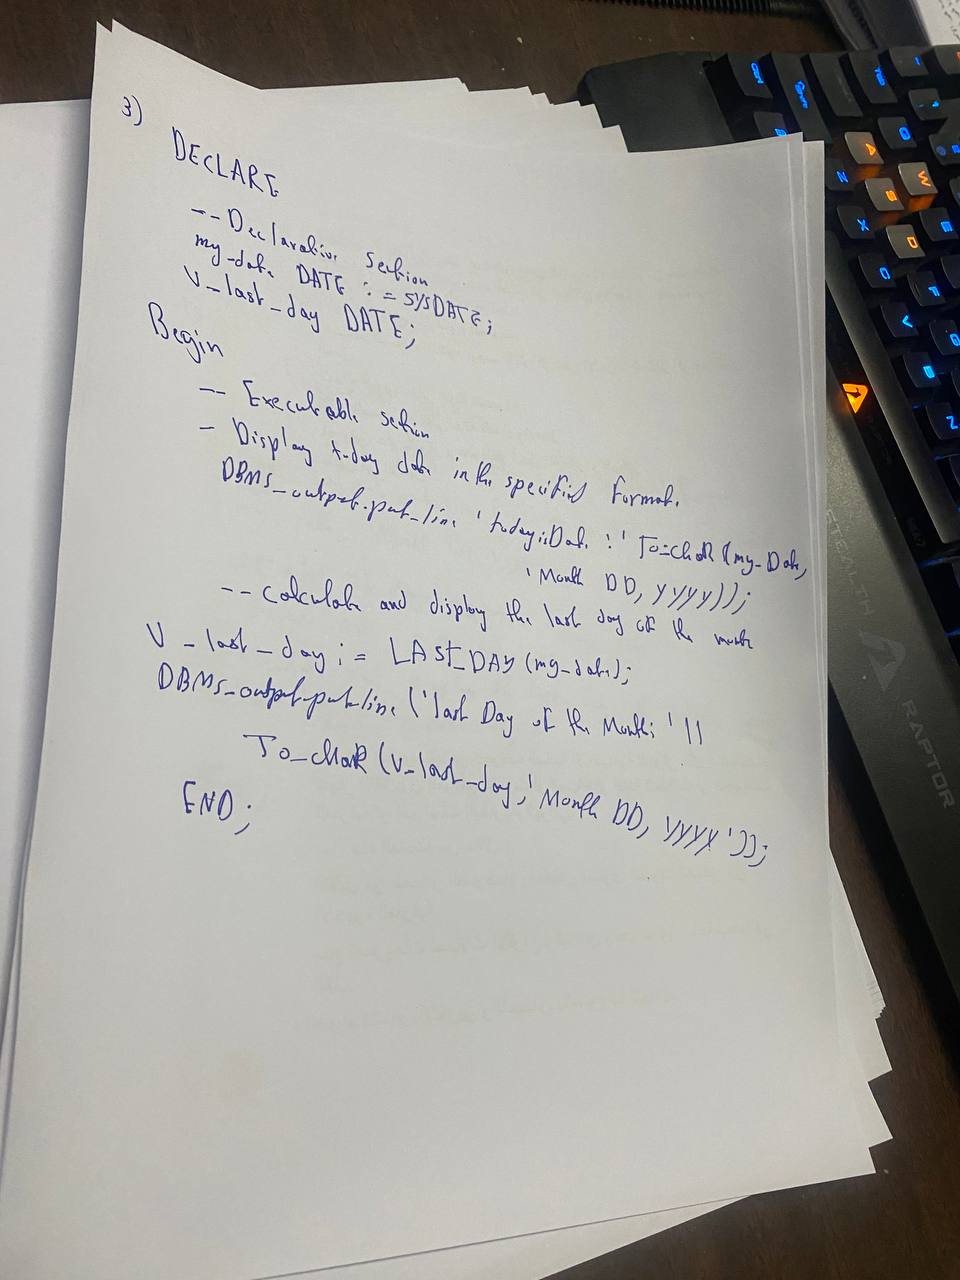 3)
DECLARE
-- Declaration section
my-date DATE := SYSDATE;
V_last_day DATE;
Begin
-- Executable section
- Display today date in the specified format.
DBMS_output.put_line 'today is Date :' To_chaR (my-Date,
'Month DD, YYYY));
-- calculate and display the last day of the month
V_last_day := LAST_DAY (my_date);
DBMS_output.put_line ('last Day of the Month: ' ||
To_chaR (v_last_day, 'Month DD, YYYY '));
END;
STEALTH
RAPTOR